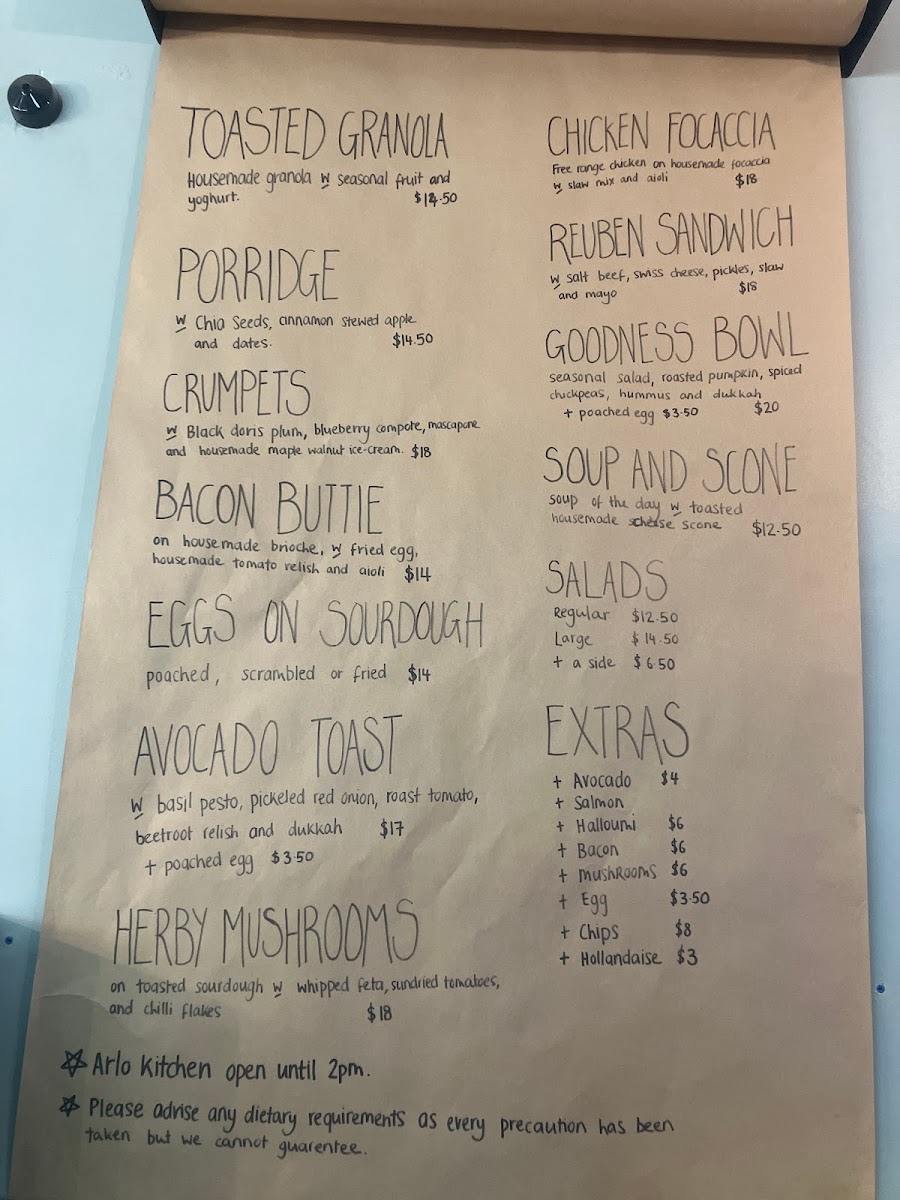 TOASTED GRANOLA
Housemade granola w seasonal fruit and
yoghurt. $14.50
PORRIDGE
w Chia Seeds, cinnamon stewed apple
and dates. $14.50
CRUMPETS
w Black doris plum, blueberry compote, mascapone
and housemade maple walnut ice-cream. $18
BACON BUTTIE
on housemade brioche, w fried egg,
housemade tomato relish and aioli $14
EGGS ON SOURDOUGH
poached, scrambled or fried $14
AVOCADO TOAST
w basil pesto, pickeled red onion, roast tomato,
beetroot relish and dukkah $17
+ poached egg $3.50
HERBY MUSHROOMS
on toasted sourdough w whipped feta, sundried tomatoes,
and chilli flakes $18
CHICKEN FOCACCIA
Free range chicken on housemade focaccia
w slaw mix and aioli $18
REUBEN SANDWICH
w salt beef, swiss cheese, pickles, slaw
and mayo $18
GOODNESS BOWL
seasonal salad, roasted pumpkin, spiced
chickpeas, hummus and dukkah
+ poached egg $3.50 $20
SOUP AND SCONE
soup of the day w toasted
housemade cheese scone $12.50
SALADS
Regular $12.50
Large $14.50
+ a side $6.50
EXTRAS
+ Avocado $4
+ Salmon
+ Halloumi $6
+ Bacon $6
+ mushRooms $6
+ Egg $3.50
+ Chips $8
+ Hollandaise $3
☆ Arlo Kitchen open until 2pm.
☆ Please advise any dietary requirements as every precaution has been
taken but we cannot guarentee.